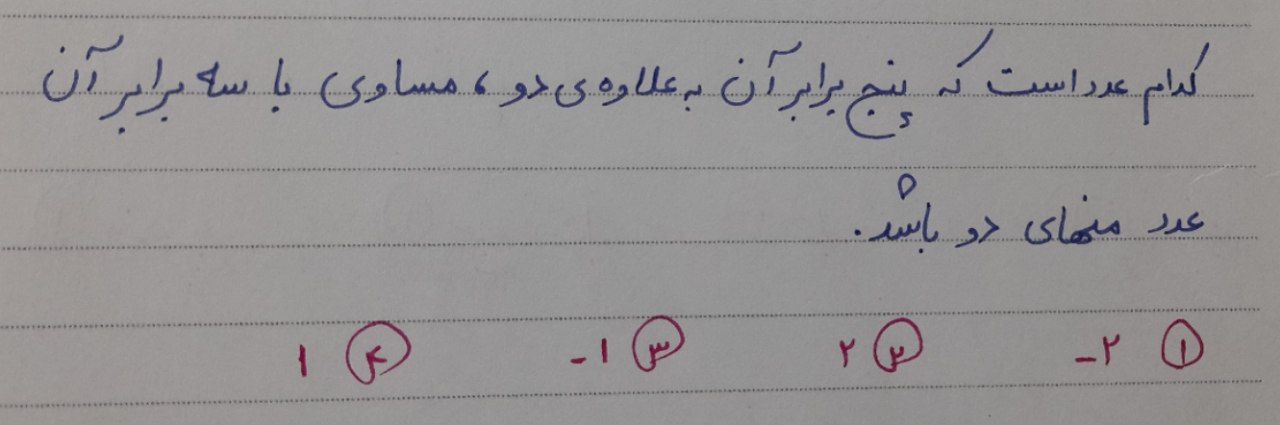 کدام عدد است که پنج برابر آن به علاوه ی دو، مساوی با سه برابر آن
عدد منهای دو باشد.
۱ ۲- ۳ ۲ ۳ ۱- ۴ ۱